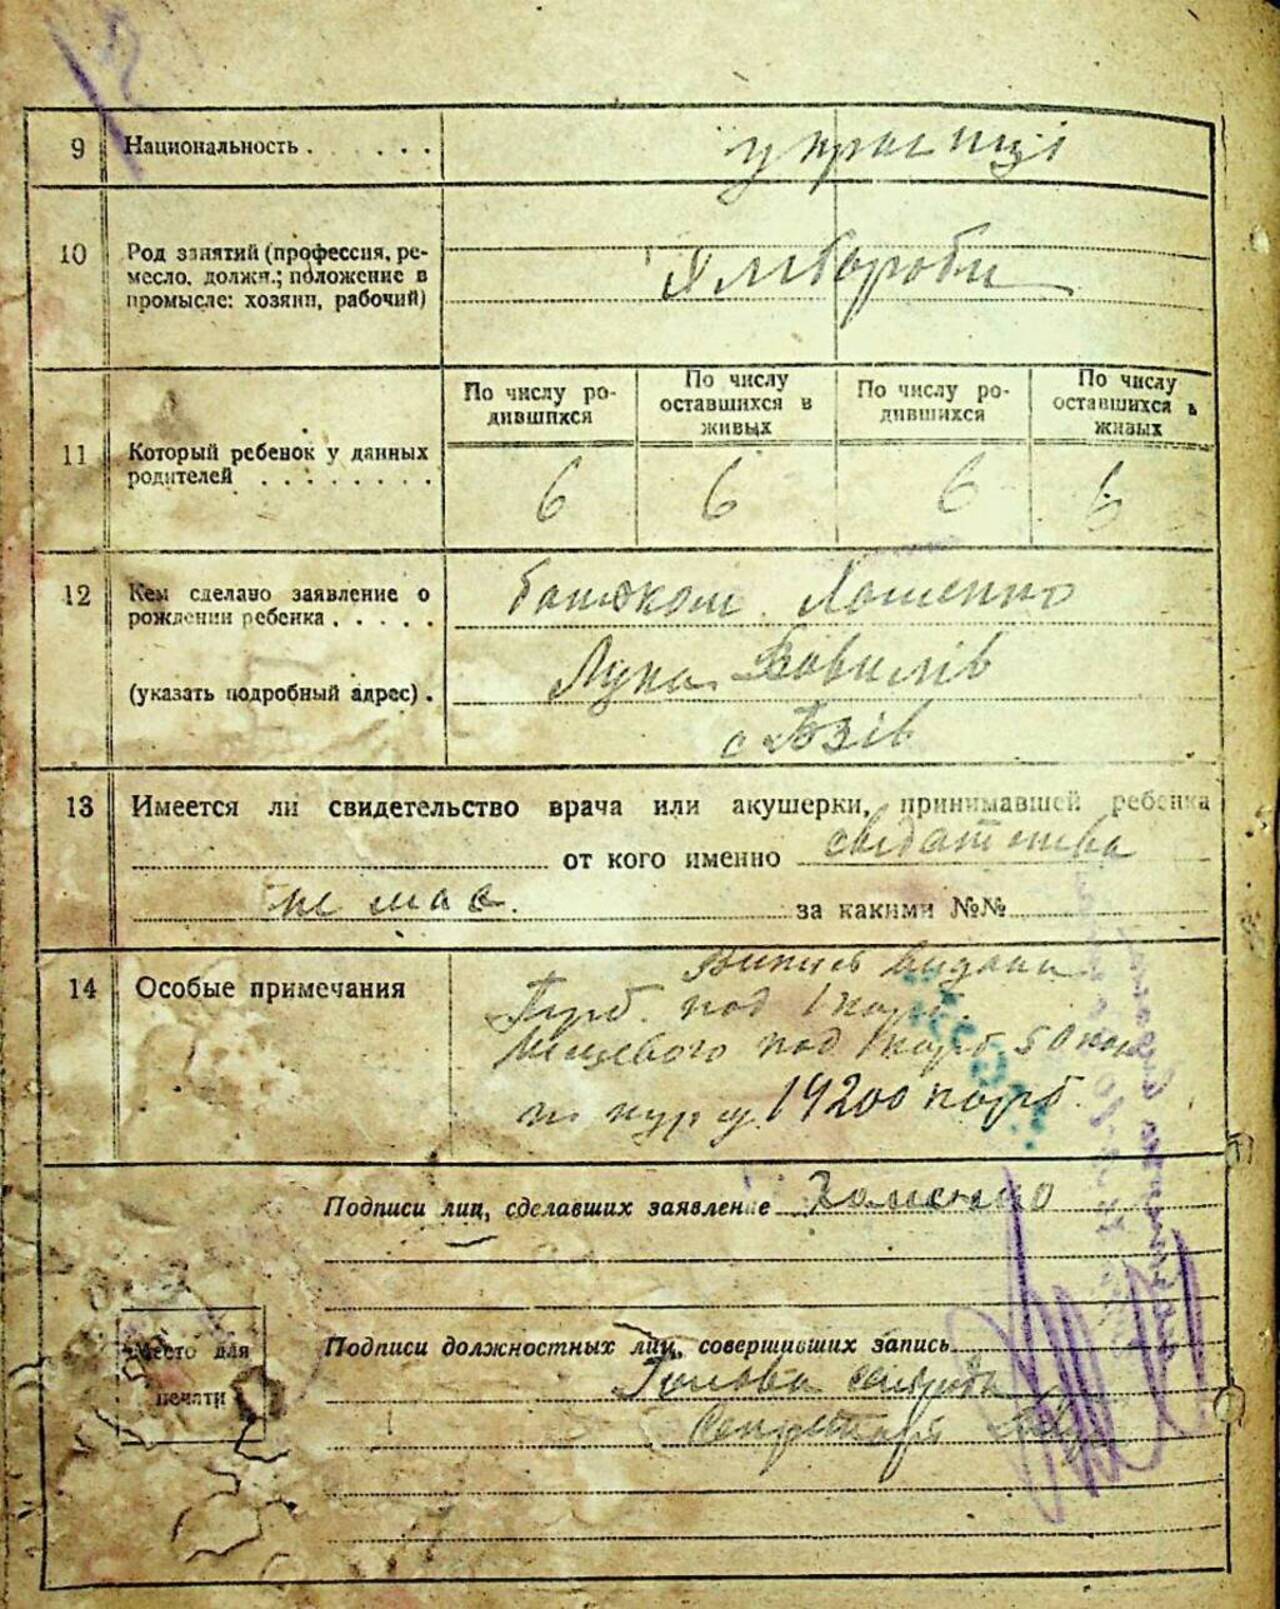 9 Национальность . . . . . українці
10 Род занятий (профессия, ре-
месло, должн.; положение в
промысле: хозяин, рабочий)
Хлібороби
По числу ро-
дившихся
По числу
оставшихся в
живых
По числу ро-
дившихся
По числу
оставшихся в
живых
11 Который ребенок у данных
родителей . . . . . . . .
6 6 6 6
12 Кем сделано заявление о
рождении ребенка . . . . .
батьком
Лука
(указать подробный адрес) .
с
13 Имеется ли свидетельство врача или акушерки, принимавшей ребенка
от кого именно свідатства
не має. за какими №№
14 Особые примечания
Випись видана
под 1 карб.
под 1 карб 50 коп
по курсу 19200 карб.
Подписи лиц, сделавших заявление
Место для
печати
Подписи должностных лиц, совершивших запись
Голова сельради
Секретарь